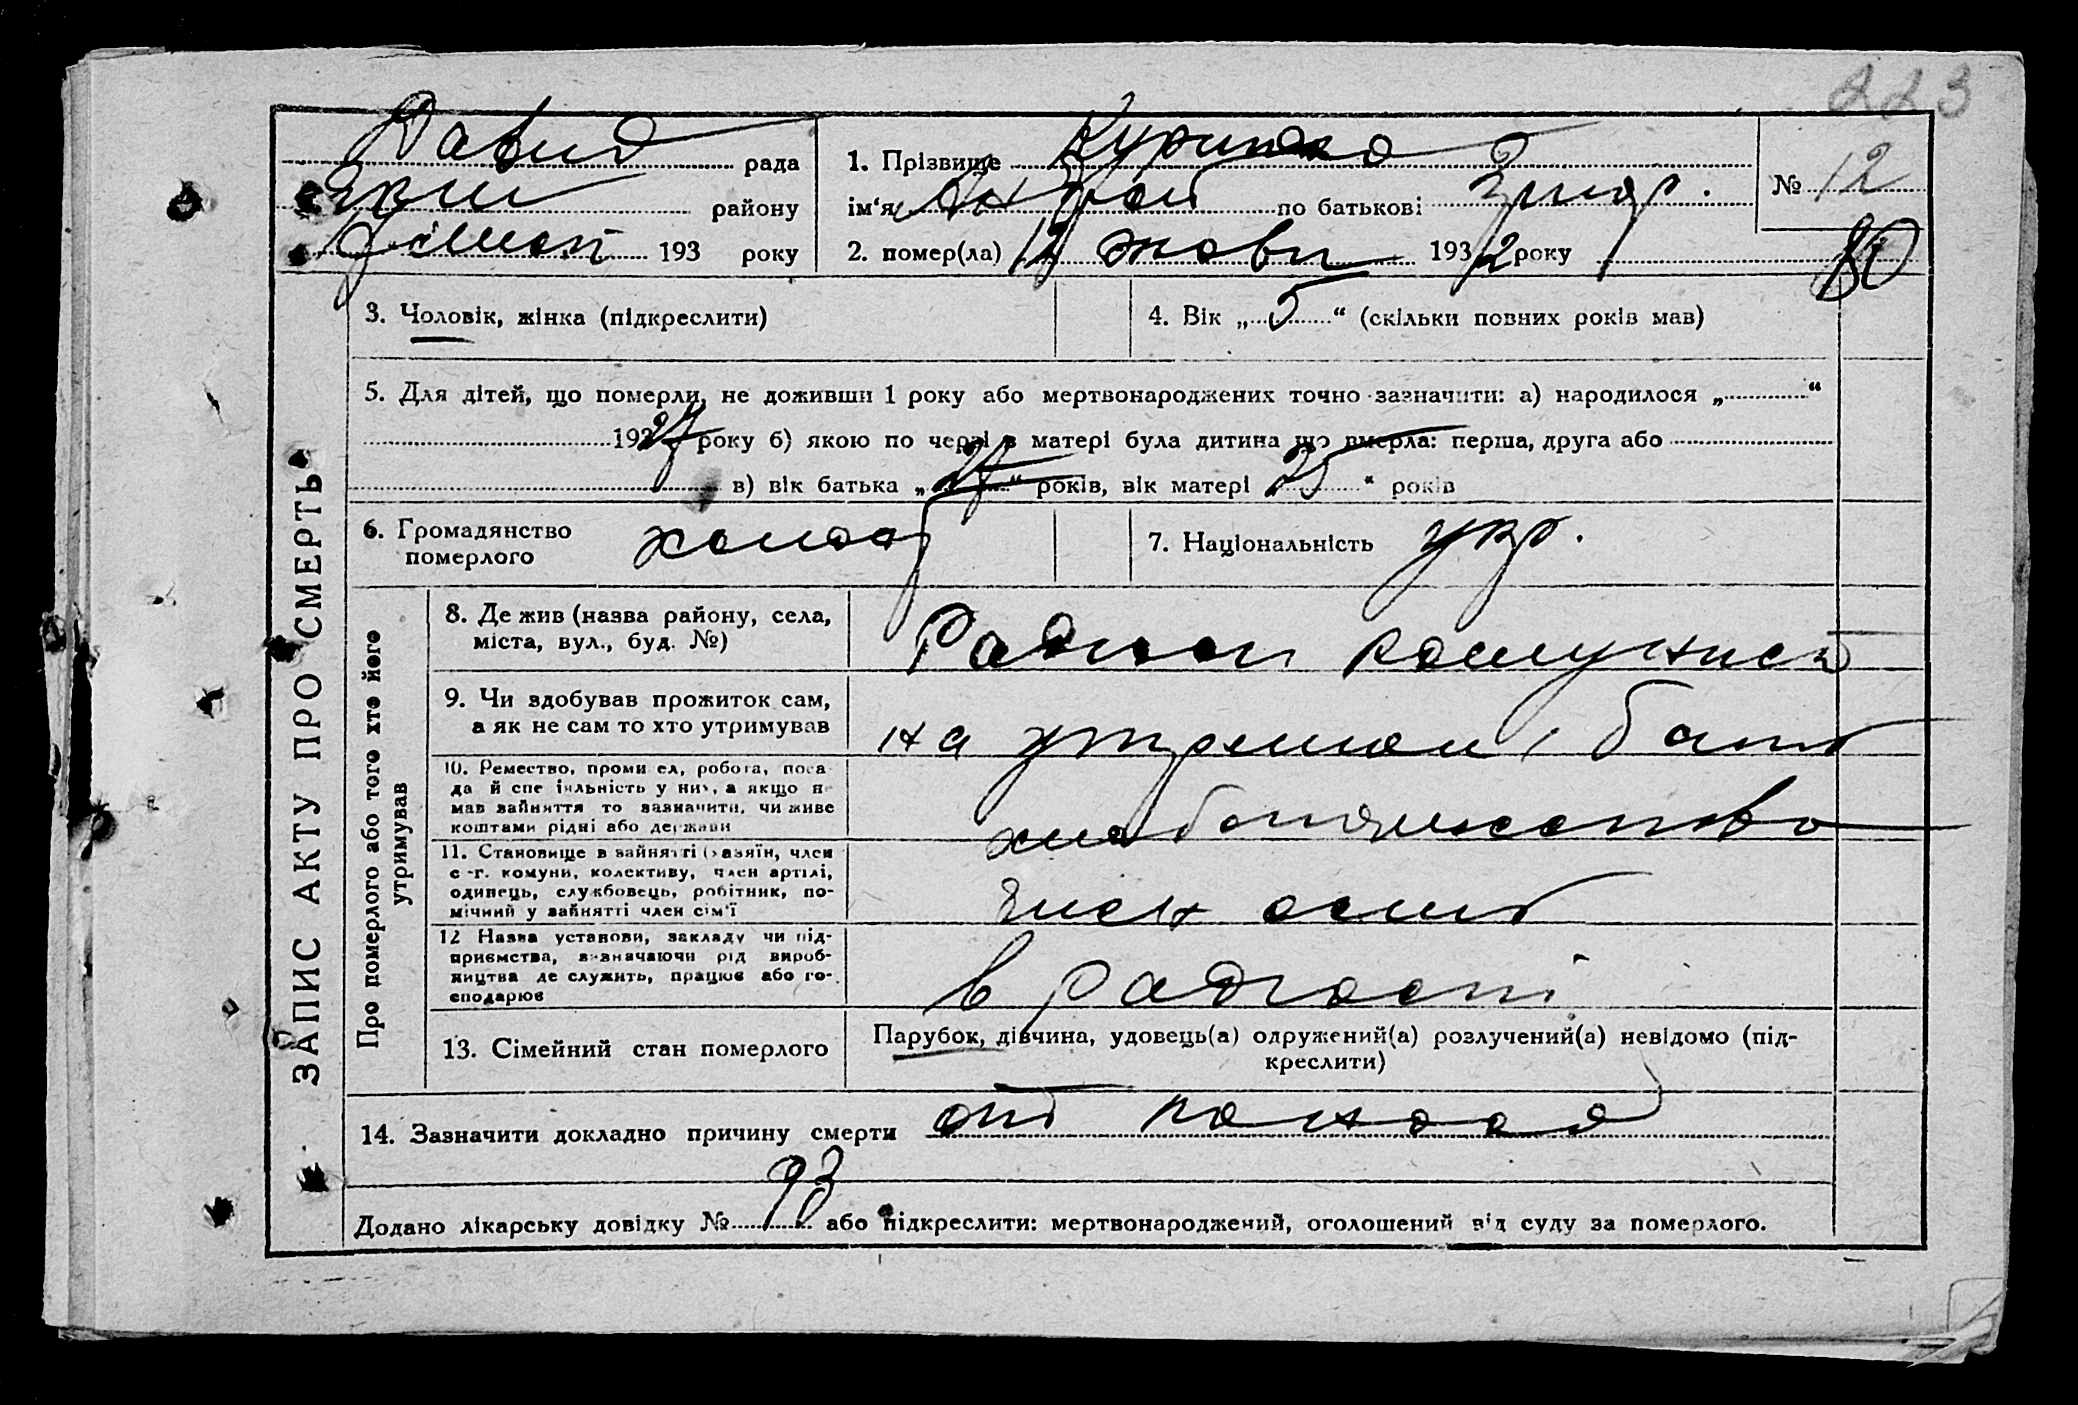 223
Давид рада
району
193 року
1. Прізвище Куринко
ім'я Андрей по батькові Григор.
2. помер(ла) 12 жовт 1932 року
№ 12
80
ЗАПИС АКТУ ПРО СМЕРТЬ
3. Чоловік, жінка (підкреслити)
4. Вік „5“ (скільки повних років мав)
5. Для дітей, що померли, не доживши 1 року або мертвонароджених точно зазначити: а) народилося „ “
1927 року б) якою по черзі в матері була дитина що вмерла: перша, друга або
в) вік батька „27“ років, вік матері 25 “ років
6. Громадянство
померлого
7. Національність укр.
Про померлого або того хто його
утримував
8. Де жив (назва району, села,
міста, вул., буд. №)
Радгосп
9. Чи здобував прожиток сам,
а як не сам то хто утримував
на утриман. бать
10. Ремество, промисел, робота, поса-
да й спеціяльність у них, а якщо не
мав зайняття то зазначити, чи живе
коштами рідні або держави
хлеборобство
11. Становище в зайнятті (хазяїн, член
с-г. комуни, колективу, член артілі,
одинець, службовець, робітник, по-
мічний у зайнятті член сім'ї
член
12 Назва установи, закладу чи під-
приємства, визначаючи рід вироб-
ництва де служить, працює або го-
сподарює
в радгоспі
13. Сімейний стан померлого
Парубок, дівчина, удовець(а) одружений(а) розлучений(а) невідомо (під-
креслити)
14. Зазначити докладно причину смерти от поноса
Додано лікарську довідку № 93 або підкреслити: мертвонароджений, оголошений від суду за померлого.